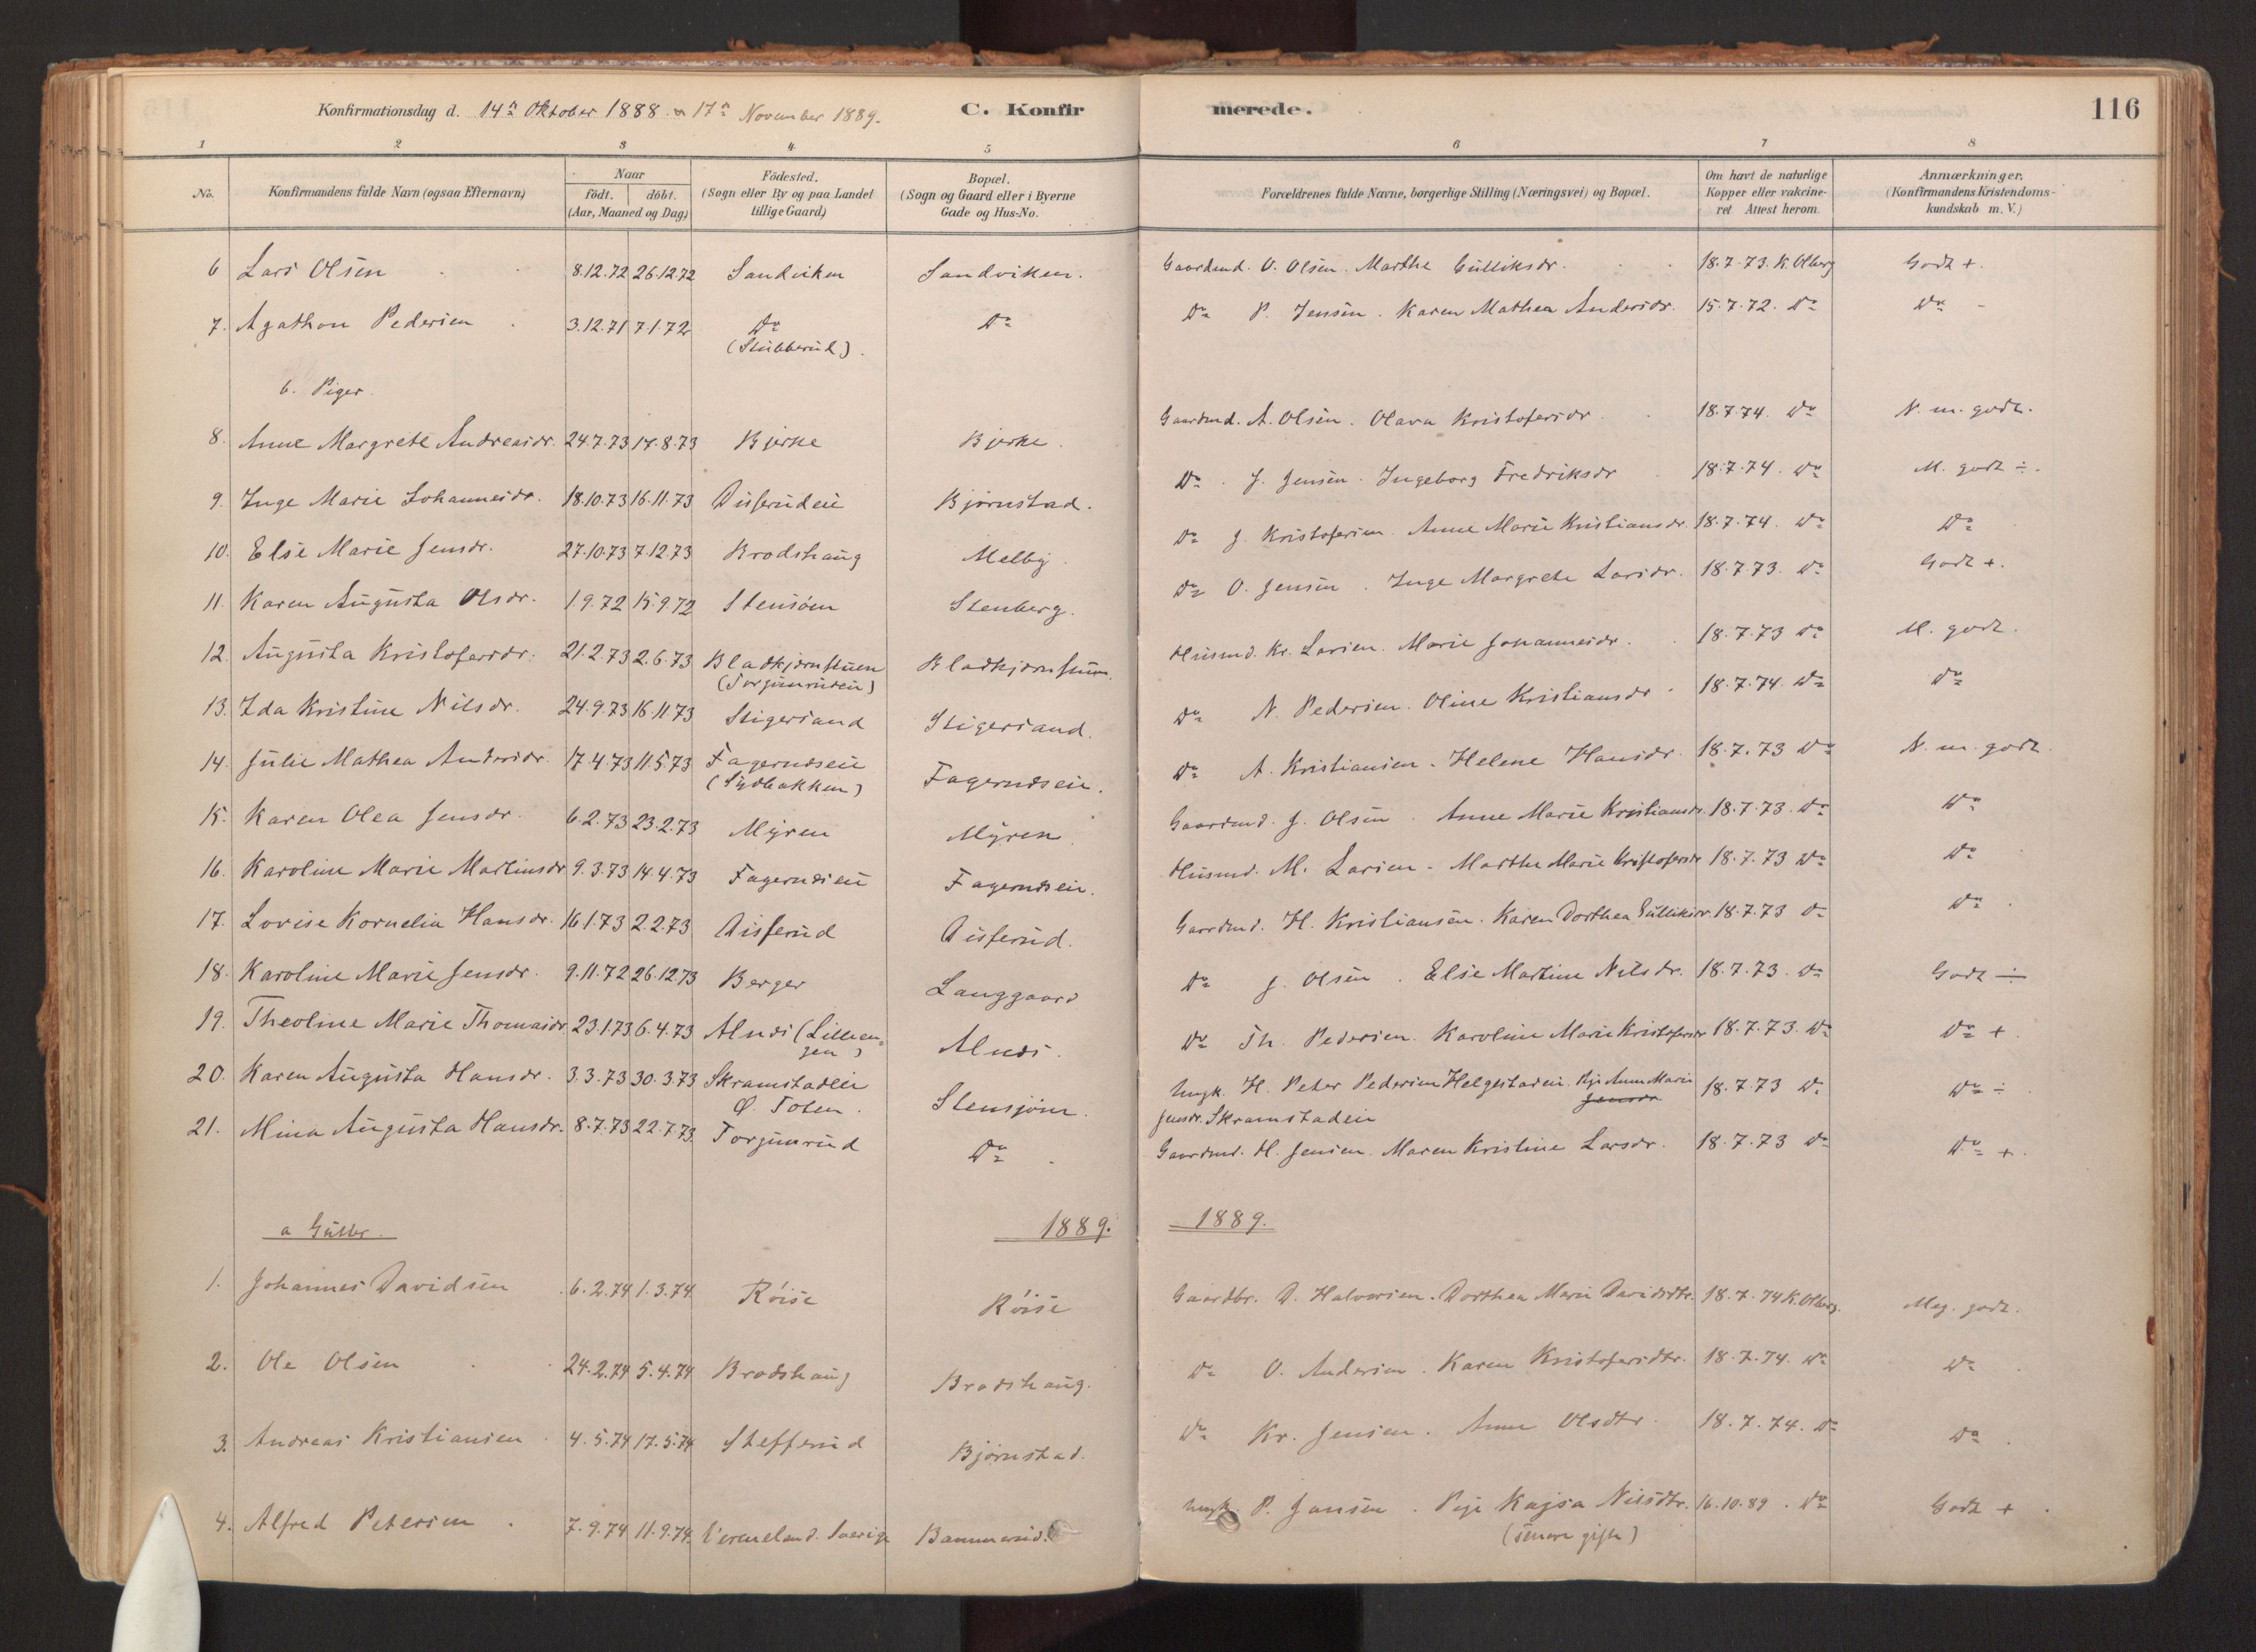 Konfirmationsdag d. 14n Oktober 1888 17n November 1889. C. Konfirmerede. 116
1 2 3 4 5 6 7 8
No. Konfirmandens fulde Navn (ogsaa Efternavn) Naar født. døbt. (Aar, Maaned og Dag) Fødested. (Sogn eller By og paa Landet tillige Gaard) Bopæl. (Sogn og Gaard eller i Byerne Gade og Hus-No. Forældrenes fulde Navne, borgerlige Stilling (Næringsvei) og Bopæl. Om havt de naturlige Kopper eller vakcineret Attest herom. Anmærkninger. (Konfirmandens Kristendomskundskab m. V.)
6 Lars Olsen 8.12.72 26.12.72 Sandviken Sandviken. Gaardmd. O. Olsen. Marthe Gulliksdr. 18.7.73. K. Olberg Godt +.
7. Agathon Pedersen 3.12.71 7.1.72 Do (Stubberud). Do Do P. Jensen. Karen Mathea Andersdr. 15.7.72. Do Do -
b. Piger.
8. Anne Margrete Andreasdr. 24.7.73 17.8.73 Bjerke Bjerke. Gaardmd. A. Olsen. Olava Kristofersdr 18.7.74. Do N. m. godt.
9. Inge Marie Johannesdr. 18.10.73 16.11.73 Disserudeie Bjørnstad. Do. J. Jensen. Ingeborg Fredriksdr 18.7.74. Do M. godt ÷.
10. Else Marie Jensdr. 27.10.73 7.12.73 Brodshaug Melby. Do J. Kristofersen. Anne Marie Kristiansdr. 18.7.74. Do Do
11. Karen Augusta Olsdr. 1.9.72 15.9.72 Stensöen Stenberg. Do O. Jensen. Inge Margrete Larsdr. 18.7.73. Do Godt +.
12. Augusta Kristofersdr. 21.2.73 2.6.73 Bladkjernstuen (Torgunrudeie) Bladkjernstuen. Husmd. Kr. Larsen. Marie Johannesdr. 18.7.73 Do M. godt.
13. Ida Kristine Nilsdr. 24.9.73 16.11.73 Stigersand Stigersand. Do N. Pedersen. Oline Kristiansdr 18.7.74. Do Do
14. Julie Mathea Andersdr. 17.4.73 11.5.73 Fagerndseie (Sydbakken) Fagerndseie. Do A. Kristiansen. Helene Hansdr. 18.7.73 Do N. m. godt.
15. Karen Olea Jensdr. 6.2.73 23.2.73 Myren Myren. Gaardmd. J. Olsen. Anne Marie Kristiansdr. 18.7.73. Do Do
16. Karoline Marie Martinsdr 9.3.73 14.4.73 Fagerndseie Fagerndseie. Husmd. M. Larsen. Marthe Marie Kristofersdr 18.7.73 Do Do
17. Lovise Kornelia Hansdr. 16.1.73 2.2.73 Disserud Disserud. Gaardmd. H. Kristiansen. Karen Dorthea Gulliksdr. 18.7.73 Do Do.
18. Karoline Marie Jensdr. 9.11.72 26.12.73 Berger Langgaard Do J. Olsen. Else Martine Nilsdr. 18.7.73. Do Godt ÷
19. Theoline Marie Thomasdr 23.1.73 6.4.73 Alnds (Lilleengen) Alnds. Do Th. Pedersen. Karoline Marie Kristofersdr 18.7.73. Do Do +
20. Karen Augusta Hansdr. 3.3.73 30.3.73 Skramstadeie Ø. Toten. Stensjøen. Ungk. H. Peter Pedersen Helgestadeie. Pige Anne Marie Jensdr. Jensdr. Skramstadeie 18.7.73 Do Do ÷
21. Mina Augusta Hansdr. 8.7.73 22.7.73 Torgunrud Do. Gaardmd. H. Jensen. Maren Kristine Larsdr. 18.7.73 Do Do +.
a Gutter. 1889. 1889.
1. Johannes Davidsen 6.2.74 1.3.74 Röise Röise Gaardbr. D. Halvorsen. Dorthea Marie Davidsdtr. 18.7.74 K. Olberg. Meg. godt.
2. Ole Olsen 24.2.74 5.4.74 Brodshaug Brodshaug. Do O. Andersen. Karen Kristofersdtr. 18.7.74. Do Do
3. Andreas Kristiansen 4.5.74 17.5.74 Stefferud Bjørnstad. Do Kr. Jensen. Anne Olsdtr. 18.7.74. Do Do.
4. Alfred Petersen 7.9.74 11.9.74. Vermeland. Sverige Bammerud. Ungk. P. Jansen. Pige Kajsa Nilsdtr. (senere gifte) 16.10.89. Do Godt +